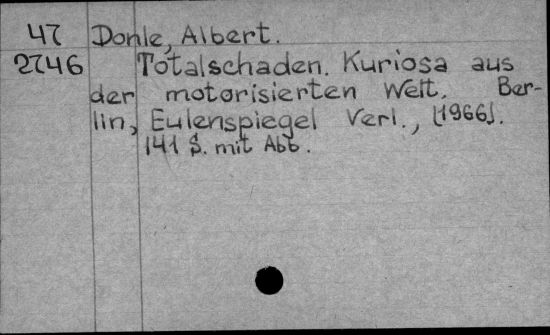 47 Dohle, Albert.
2746 Totalschaden. Kuriosa aus
der motorisierten Welt. Ber-
lin, Eulenspiegel Verl., [1966].
141 S. mit Abb.